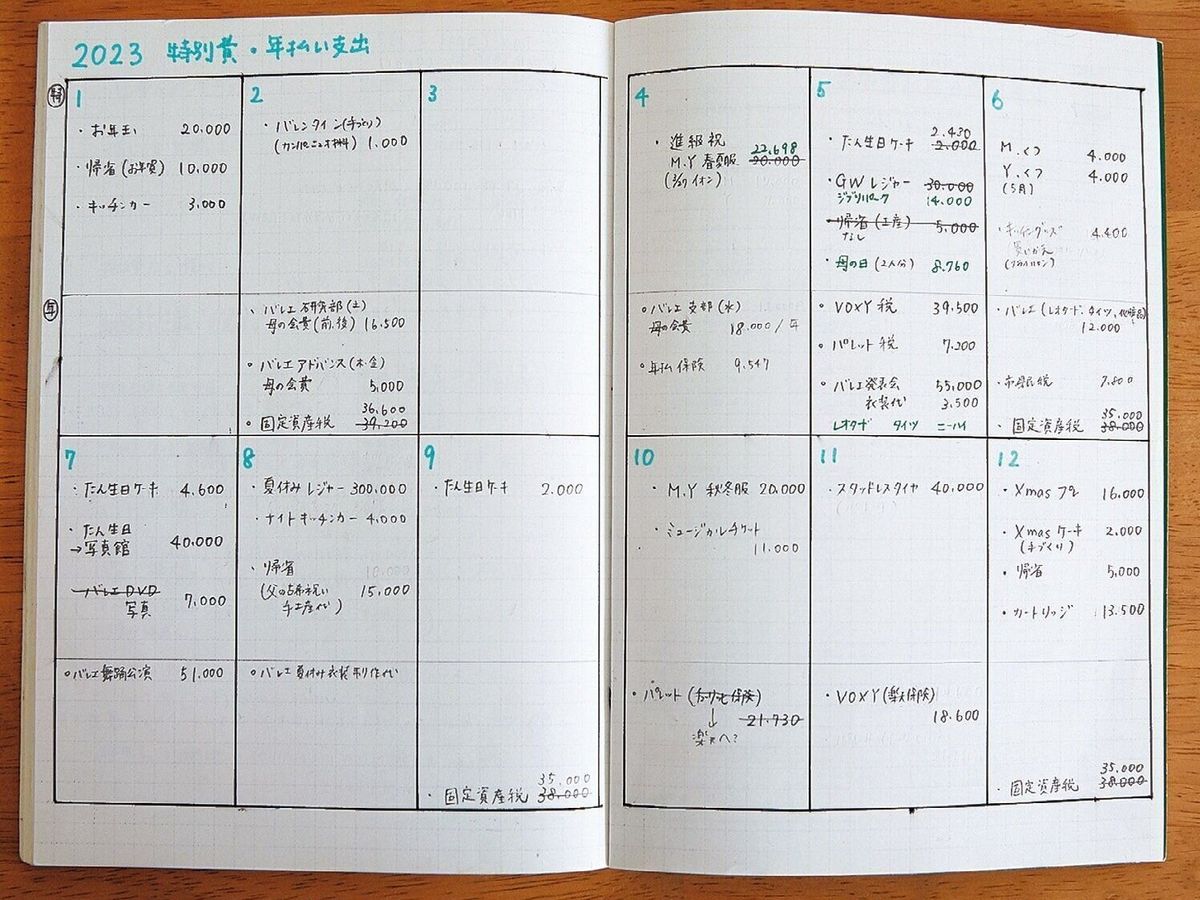 2023 特別費・年払い支出
特
1
・お年玉 20,000
・帰省(お年賀) 10,000
・キッチンカー 3,000
2
・バレンタイン(手づくり) 1,000
3
年
・バレエ研究部(土)
母の会費(前、後) 16,500
・バレエアドバンス(木・金)
母の会費 5,000
36,600
・固定資産税 39,200
4
・進級祝 22,698
M.Y 春夏服 20,000
5
2,430
・たん生日ケーキ 2,000
・GWレジャー 30,000
ジブリパーク 14,000
・帰省(土産) 5,000
なし
・母の日(2人分) 8,760
6
M.くつ 4,000
Y.くつ 4,000
(5月)
・キッチングッズ 4,400
買いかえ
・バレエ支部(水)
母の会費 18,000/年
・年払保険 9,547
・VOXY税 39,500
・パレット税 7,200
・バレエ発表会 55,000
衣装代 3,500
レオタード タイツ
・バレエ(レオタード、タイツ、化粧品)
12,000
・市県民税 7,800
35,000
・固定資産税 38,000
7
・たん生日ケーキ 4,600
・たん生日
→写真館 40,000
・バレエDVD
写真 7,000
8
・夏休みレジャー 300,000
・ナイトキッチンカー 4,000
・帰省
(父の古希祝い 15,000
手土産代)
9
・たん生日ケーキ 2,000
・バレエ舞踊公演 51,000
・バレエ夏休み衣装制作代
35,000
・固定資産税 38,000
10
・M.Y 秋冬服 20,000
・ミュージカルチケット
11,000
11
・スタッドレスタイヤ 40,000
12
・Xmasプレ 16,000
・Xmasケーキ 2,000
(手づくり)
・帰省 5,000
・カートリッジ 13,500
・パレット
21,730
↓
楽天へ?
・VOXY(楽天保険)
18,600
35,000
・固定資産税 38,000